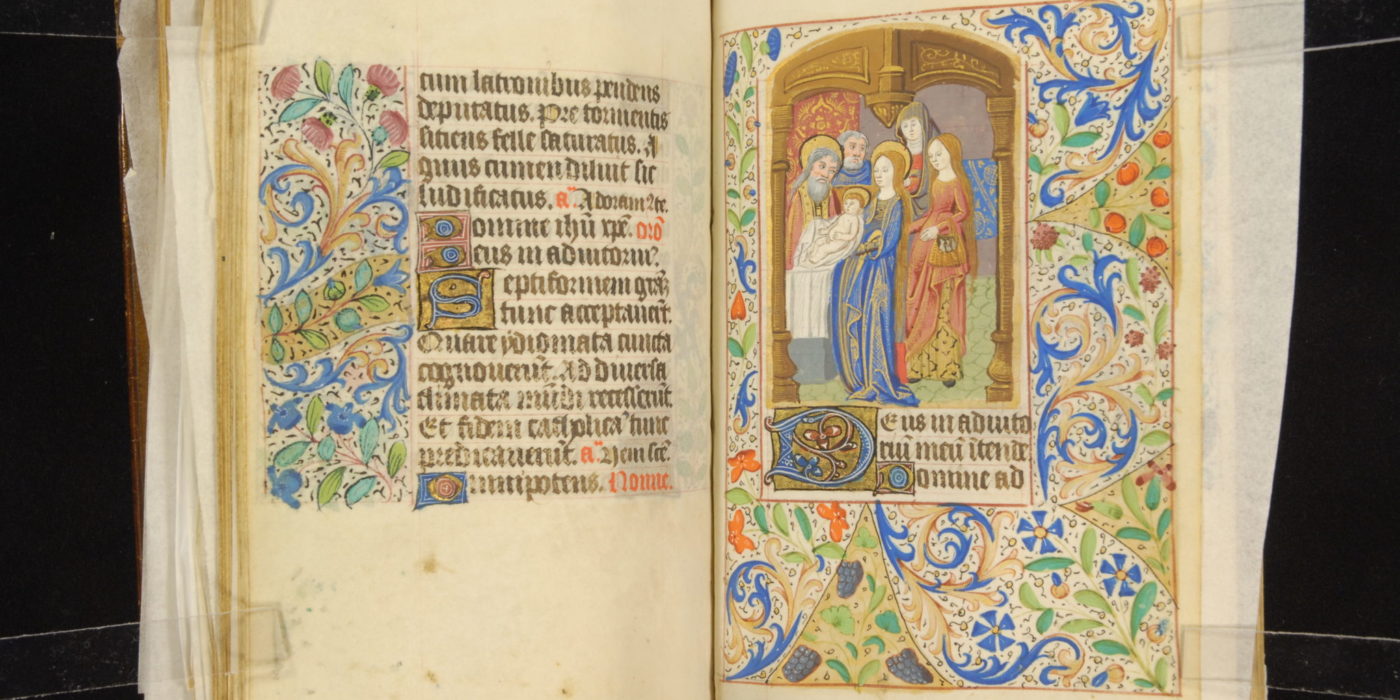 cum latronibus pendens
deputatus. Pre tormentis
siciens felle saturatus. A
guis crimen diluit sic
ludificatus. añ. Adoram⁹ te.
Domine ihũ xpẽ. orõ
Deus in adiutoriũ.
Septiformem grãz
tunc acceptauert̃.
Quare ydiomata cuncta
cognouert̃. Ad diuersa
climata mũdi recesserũt
Et fidem catholicã tunc
predicauerũt. añ. Veni scẽ.
Omnipotens. Nonne.
Deus in adiuto
riũ meũ ĩtende
Domine ad